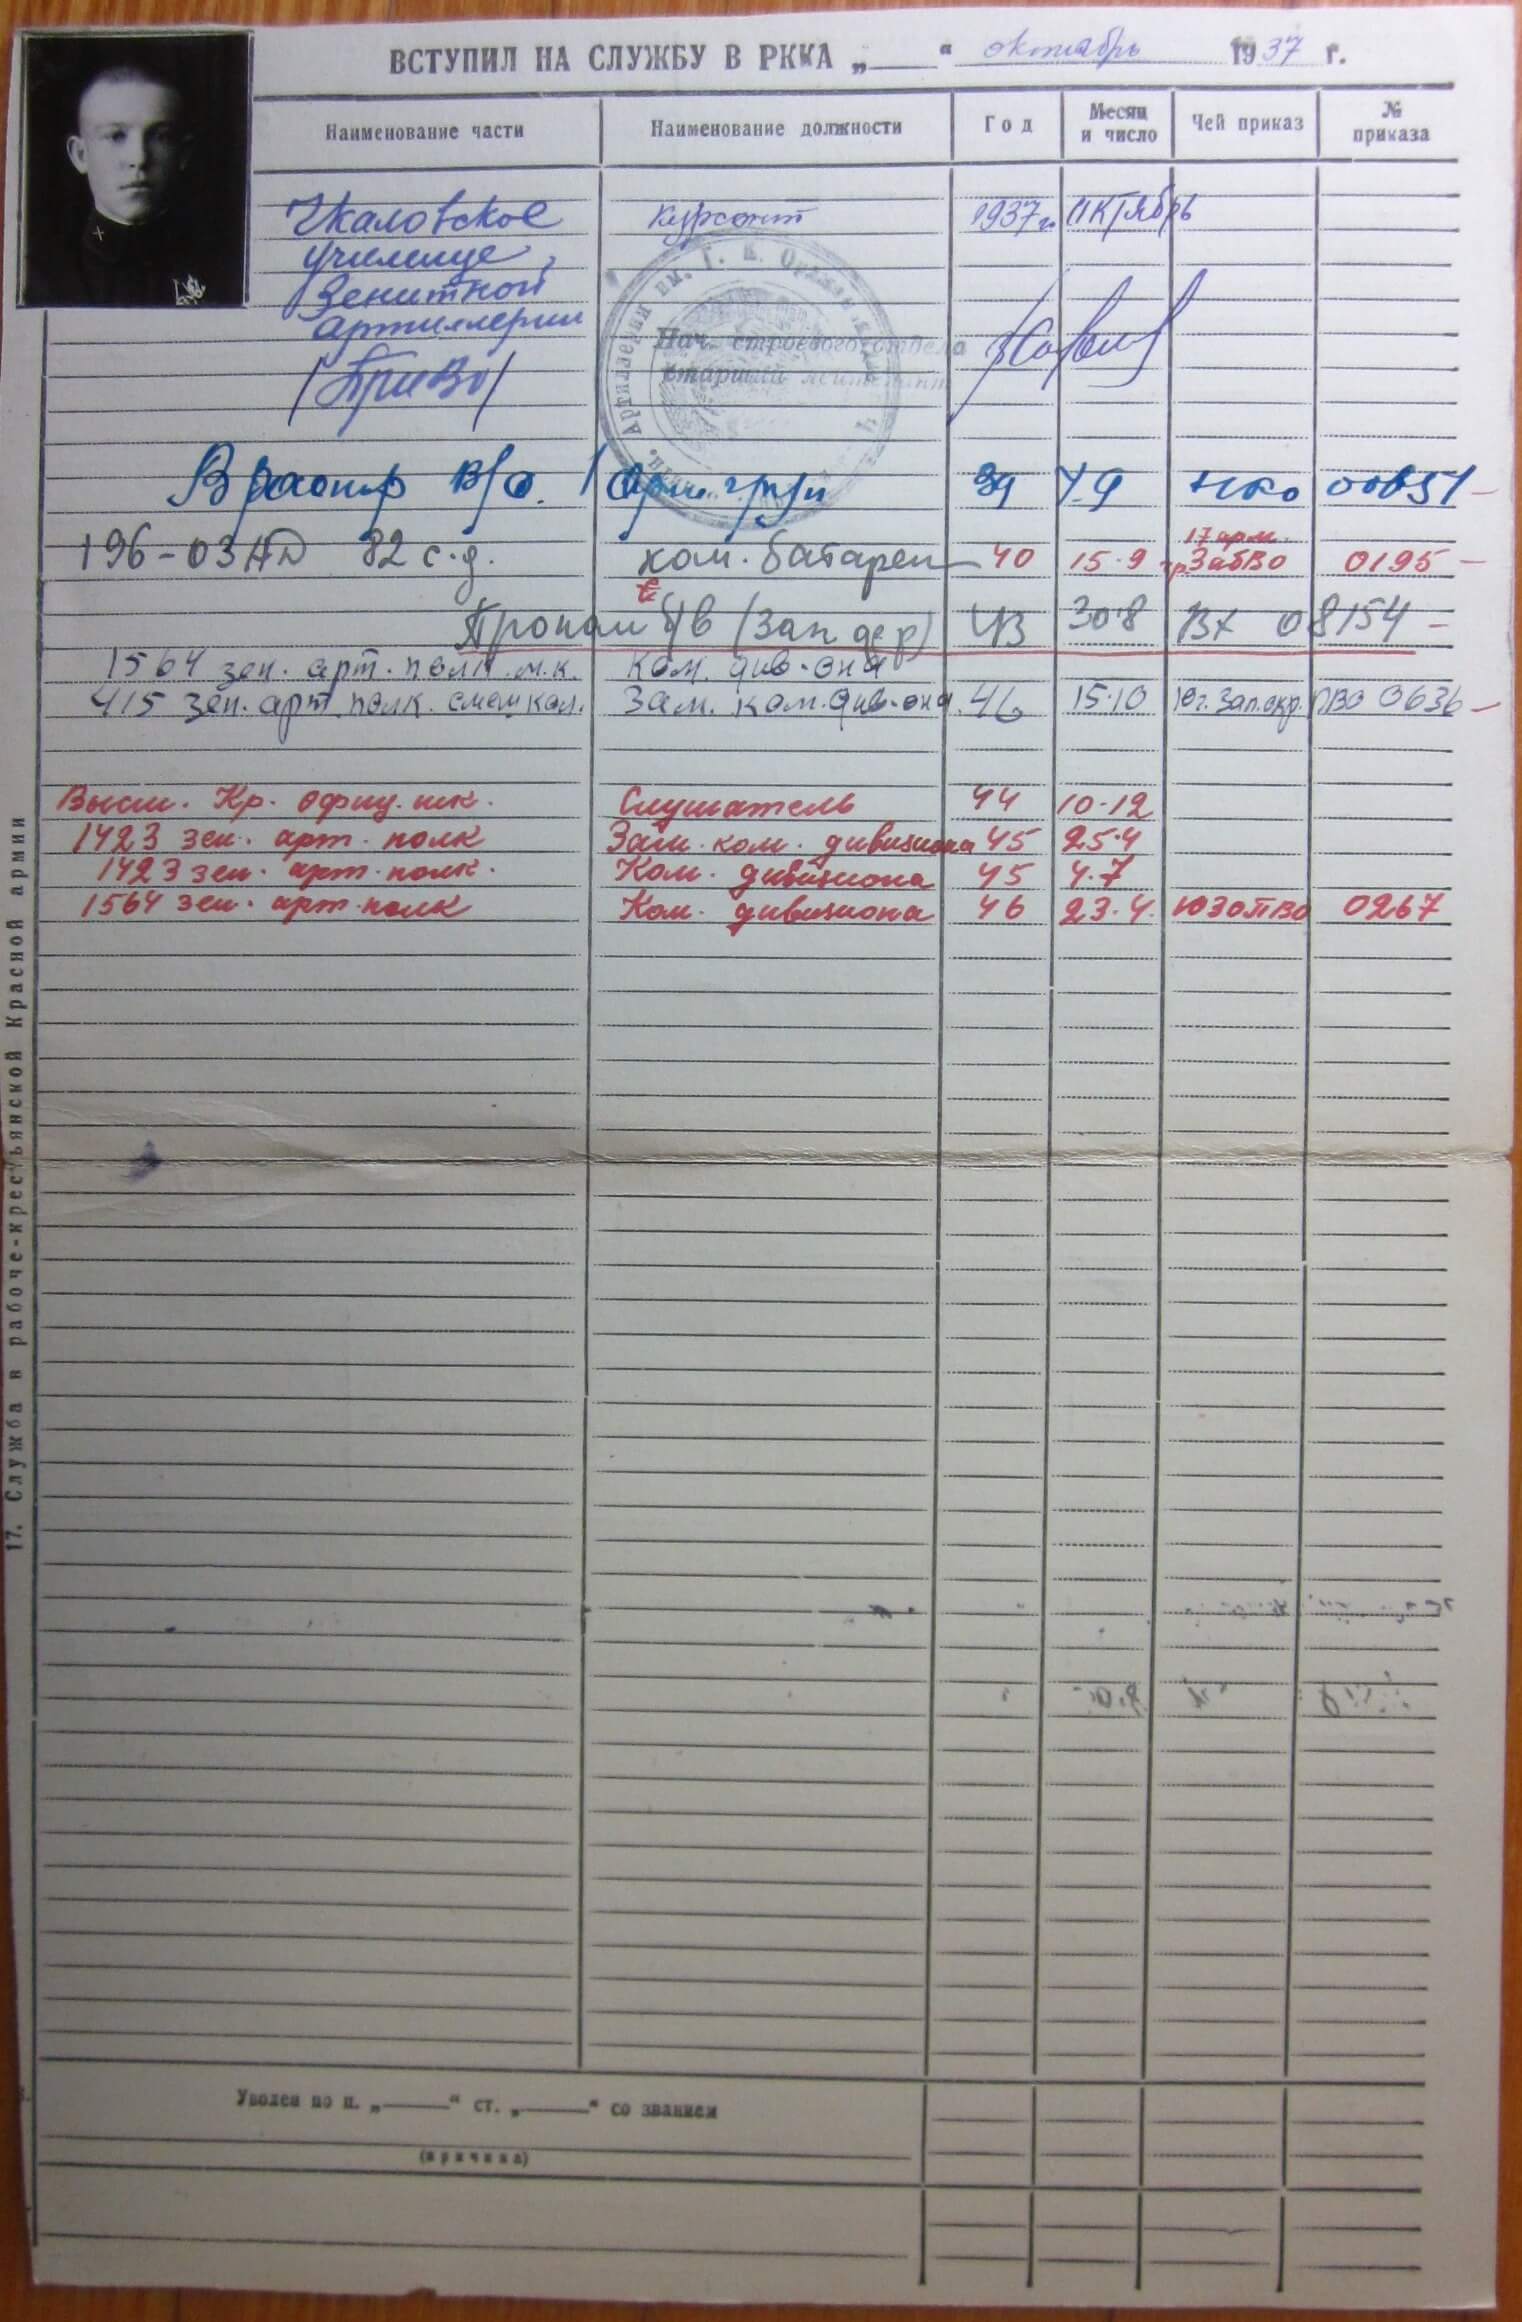 ВСТУПИЛ НА СЛУЖБУ В РККА „____“ октябрь 1937 г.
Наименование части Наименование должности Год Месяц и число Чей приказ № приказа
Чкаловское курсант 1937 г. октябрь
училище
Зенитной
артиллерии
(ПриВо)
Артиллерии им. Г. К. Орджон
Нач. строевого отдела
старший лейтенант
В распор В/с. 39 НКО
196-ОЗАД 82 с.д. ком. батареи 40 15.9 17 арм. ЗабВО 0195
Пропал б/в 43 30.8 ВХ 08154
1564 зен. арт. полк м.к. ком. див-она
415 зен. арт. полк. Зам. ком. див-она 46 15.10 Юг. Зап. окр. ПВО 0636
Высш. Кр. офиц. шк. Слушатель 44 10.12
1423 зен. арт. полк Зам. ком. дивизиона 45 25.4
1423 зен. арт. полк. Ком. дивизиона 45 4.7
1564 зен. арт. полк Ком. дивизиона 46 23.4. ЮЗОПВО 0267
17. Служба в рабоче-крестьянской Красной армии
Уволен по п. „____“ ст. „____“ со званием
(причина)